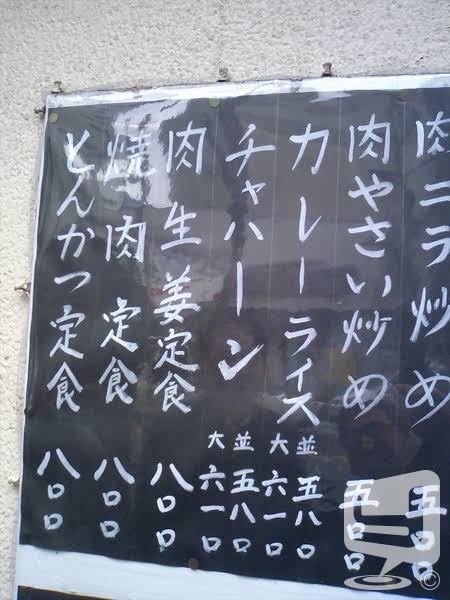 肉ニラ炒め 五〇〇
肉やさい炒め 五〇〇
カレーライス 並五八〇 大六一〇
チャハーン 並五八〇 大六一〇
肉生姜定食 八〇〇
焼肉定食 八〇〇
とんかつ定食 八〇〇
©